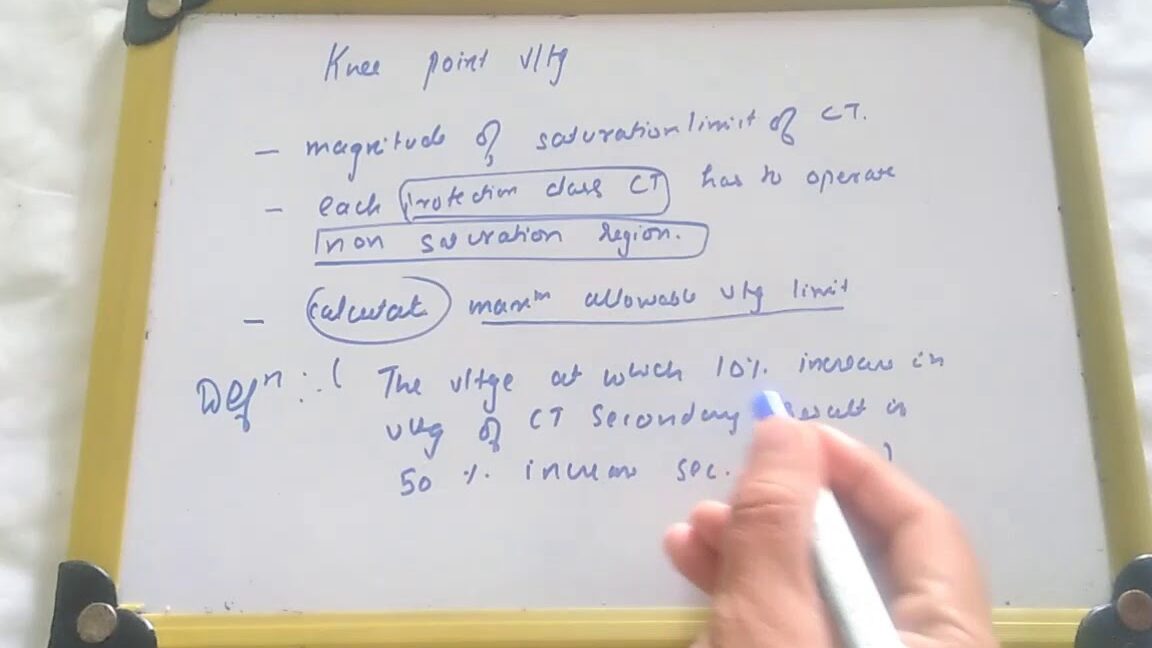 Knee point vltg
- magnitude of saturation limit of CT.
- each Protection class CT has to operate
non saturation region.
- calculate maxm allowable vltg limit
Defn : ( The vltge at which 10% increase in
vltg of CT secondary result in
50 % increase sec. )